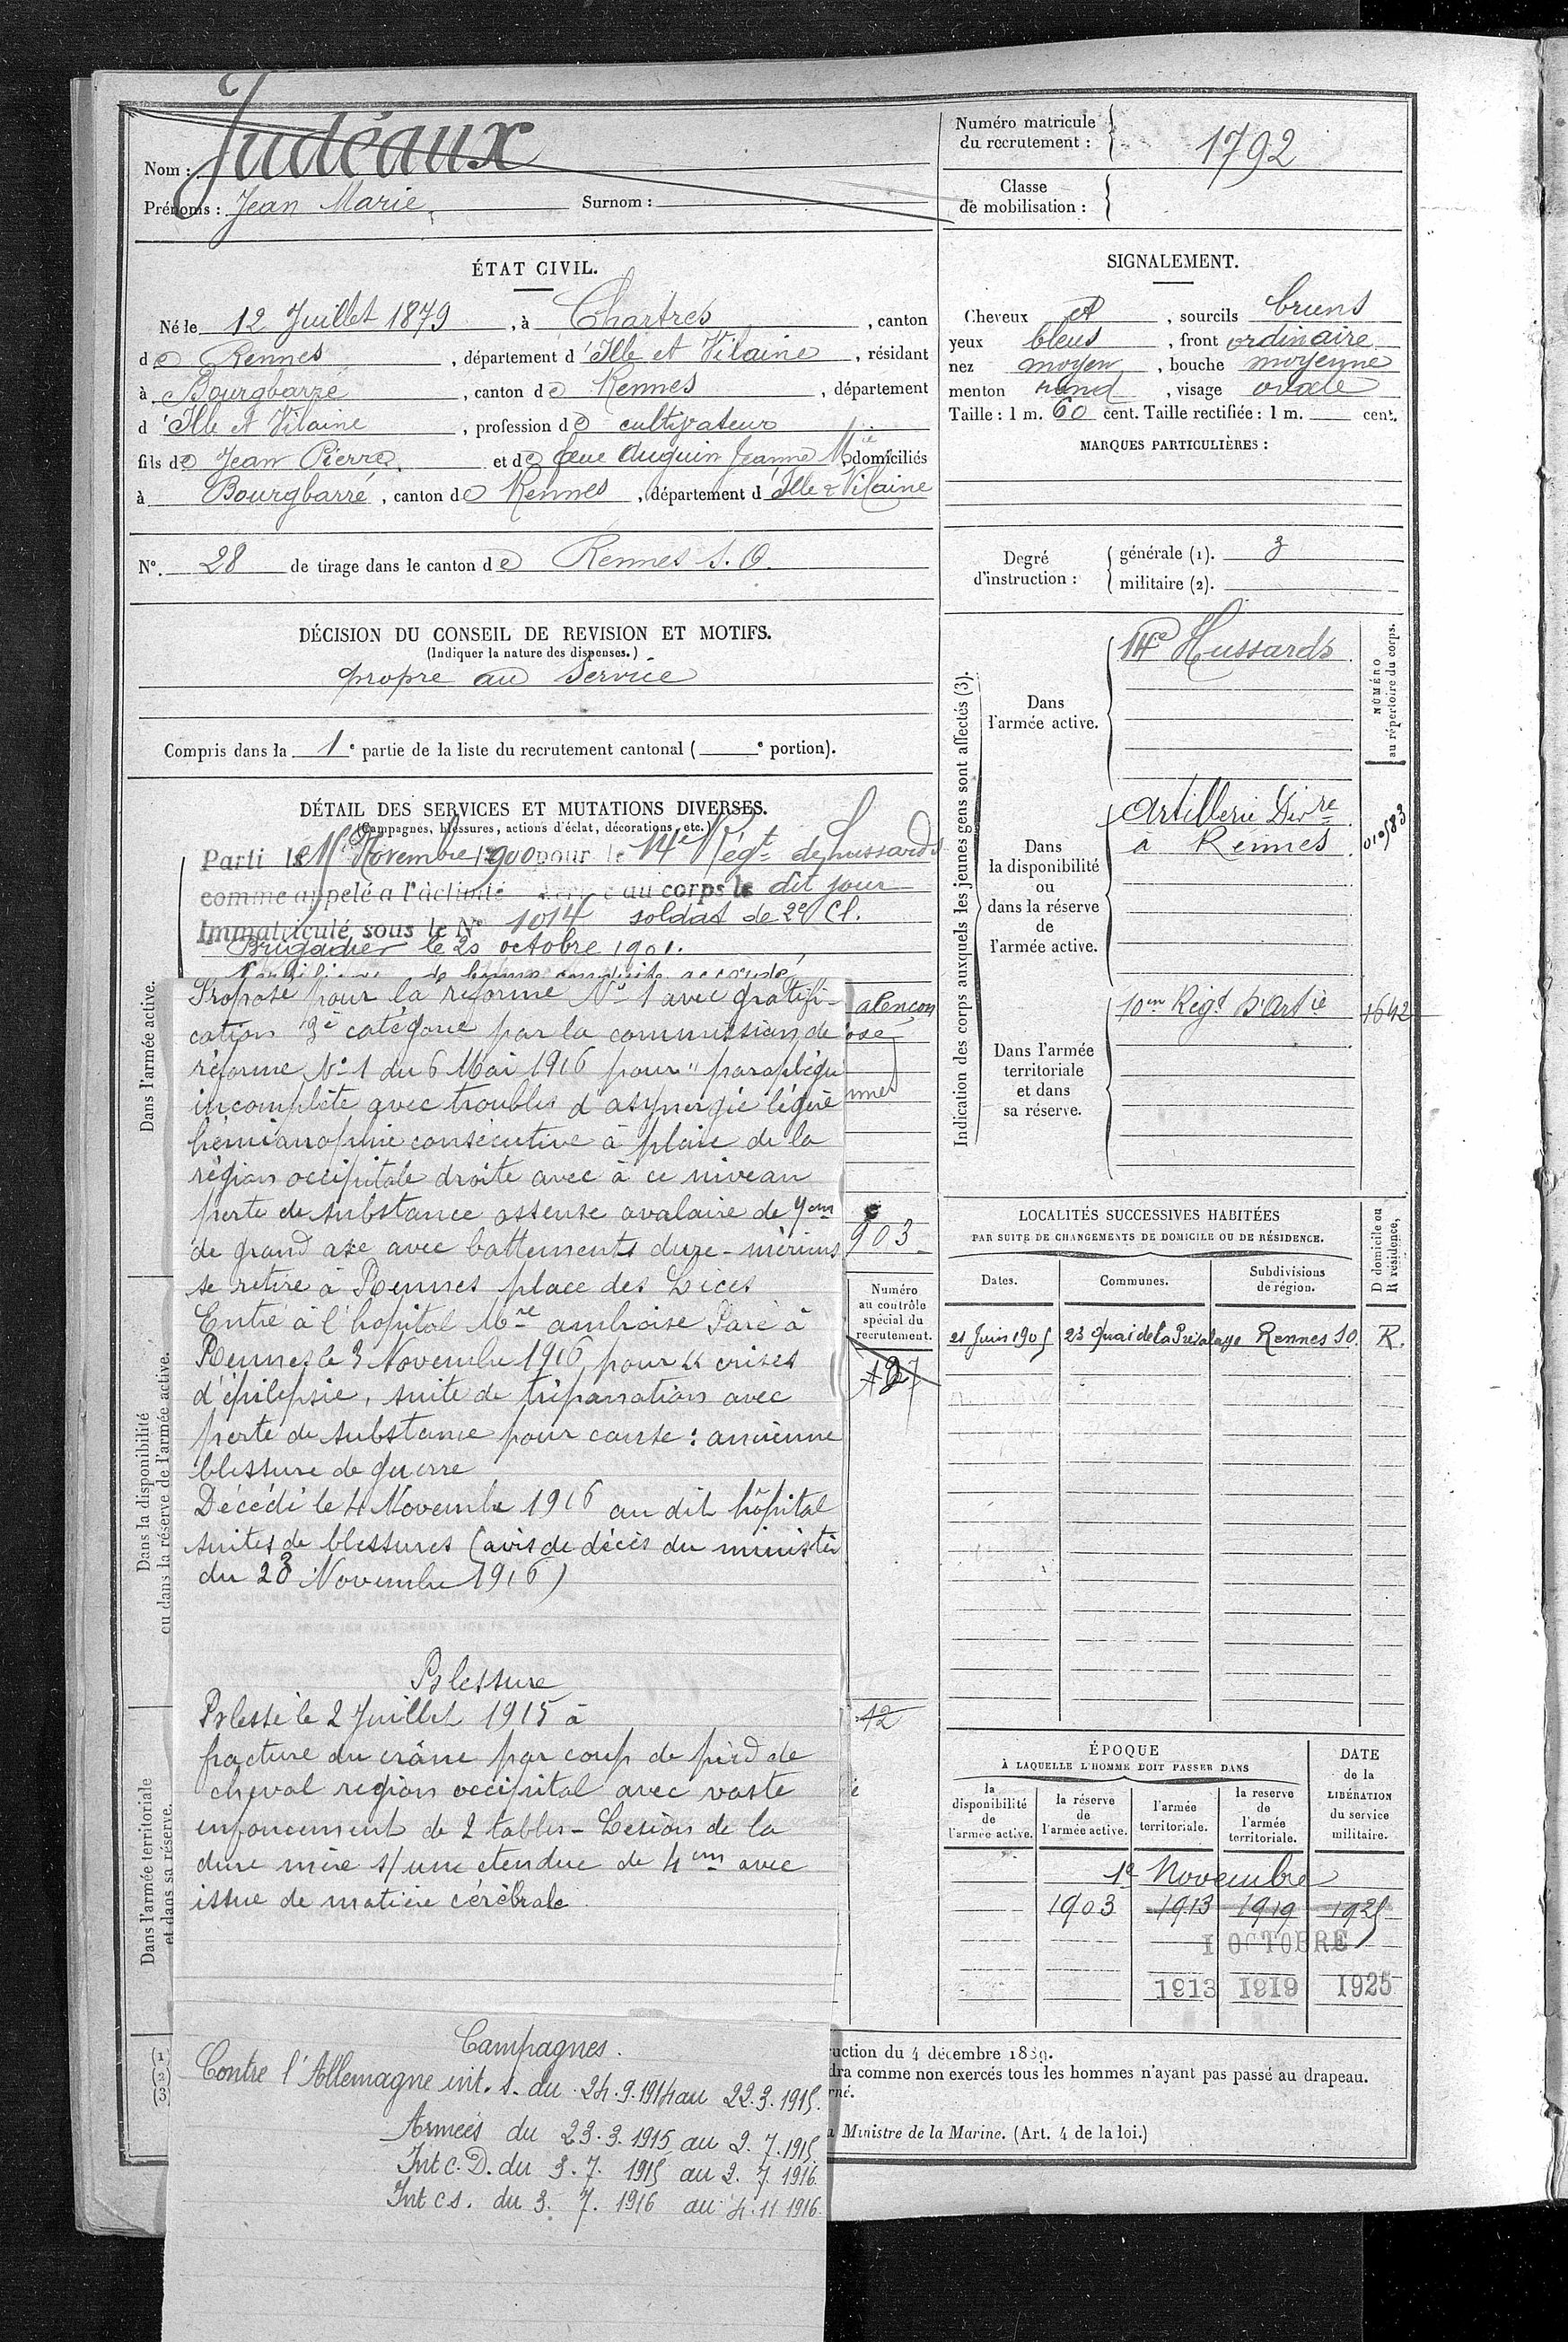 Nom : Judéaux
Prénoms : Jean Marie Surnom :
Numéro matricule du recrutement : 1792
Classe de mobilisation :
ÉTAT CIVIL.
Né le 12 Juillet 1879, à Chartres, canton
de Rennes, département d'Ille et Vilaine, résidant
à Bourgbarré, canton de Rennes, département
d'Ille et Vilaine, profession de cultivateur
fils de Jean Pierre et de feue Auguin Jeanne Mie, domiciliés
à Bourgbarré, canton de Rennes, département d Ille & Vilaine
N° 28 de tirage dans le canton de Rennes S. O.
DÉCISION DU CONSEIL DE REVISION ET MOTIFS.
(Indiquer la nature des dispenses.)
propre au service
Compris dans la 1e partie de la liste du recrutement cantonal ( e portion).
DÉTAIL DES SERVICES ET MUTATIONS DIVERSES.
(Campagnes, blessures, actions d'éclat, décorations, etc.)
Parti le Novembre 1900 pour le 14e Régt de hussards
comme appelé à l'activité au corps le dit jour
Immatriculé sous le N° 1014 soldat de 2e Cl.
Brigadier le 20 octobre 1901.
de bonne conduite accordé
Proposé pour la réforme N° 1 avec gratifi-
cation 3e catégorie par la commission de
réforme N° 1 du 6 Mai 1916 pour " paraplégie
incomplète avec troubles d'asynergie légère
hémianopsie consécutive à plaie de la
région occipitale droite avec à ce niveau
perte de substance osseuse ovalaire de cm
de grand axe avec battements dure-mériens
se retire à Rennes place des Lices
Entré à l'hopital Mre ambroise Paré à
Rennes le 3 Novembre 1916 pour crises
d'épilepsie, suite de trépanation avec
perte de substance pour cause : ancienne
blessure de guerre
Décédé le 4 Novembre 1916 au dit hôpital
suites de blessures (avis de décès du ministère
du 23 Novembre 1916)
Blessure
Blessé le 2 Juillet 1915 à
fracture du crâne par coup de pied de
cheval region occipital avec vaste
enfoncement de 2 tables - Lesion de la
dure mère s/ une etendue de 4 cm avec
issue de matière cérébrale
Campagnes.
Contre l'Allemagne int. s. du 24.9.1914 au 22.3.1915.
Armées du 23.3.1915 au 2.7.1915
Int C. D. du 3.7.1915 au 2.7.1916
Int c s. du 3.7.1916 au 4.11 1916
alençon
903
Numéro au contrôle spécial du recrutement.
127
12
Dans l'armée active.
Dans la disponibilité ou dans la réserve de l'armée active.
Dans l'armée territoriale et dans sa réserve.
(1)
(2)
(3)
uction du 4 décembre 1889.
dra comme non exercés tous les hommes n'ayant pas passé au drapeau.
rné.
Ministre de la Marine. (Art. 4 de la loi.)
SIGNALEMENT.
Cheveux et, sourcils bruns
yeux bleus, front ordinaire
nez moyen, bouche moyenne
menton rond, visage ovale
Taille : 1 m. 60 cent. Taille rectifiée : 1 m. cent.
MARQUES PARTICULIÈRES :
Degré d'instruction : générale (1). 3
militaire (2).
Indication des corps auxquels les jeunes gens sont affectés (3).
NUMÉRO au répertoire du corps.
Dans l'armée active.
14e Hussards
Dans la disponibilité ou dans la réserve de l'armée active.
Artillerie Divre
à Rennes
Dans l'armée territoriale et dans sa réserve.
10em Régt d'Artie 1642
LOCALITÉS SUCCESSIVES HABITÉES
PAR SUITE DE CHANGEMENTS DE DOMICILE OU DE RÉSIDENCE.
Dates. Communes. Subdivisions de région. D domicile ou R résidence.
21 Juin 1905 23 quai de la Prévalaye Rennes SO. R.
ÉPOQUE
À LAQUELLE L'HOMME DOIT PASSER DANS
DATE de la LIBÉRATION du service militaire.
la disponibilité de l'armée active.
la réserve de l'armée active.
l'armée territoriale.
la reserve de l'armée territoriale.
1e Novembre
1903 1913 1919 1925
1 OCTOBRE
1913 1919 1925